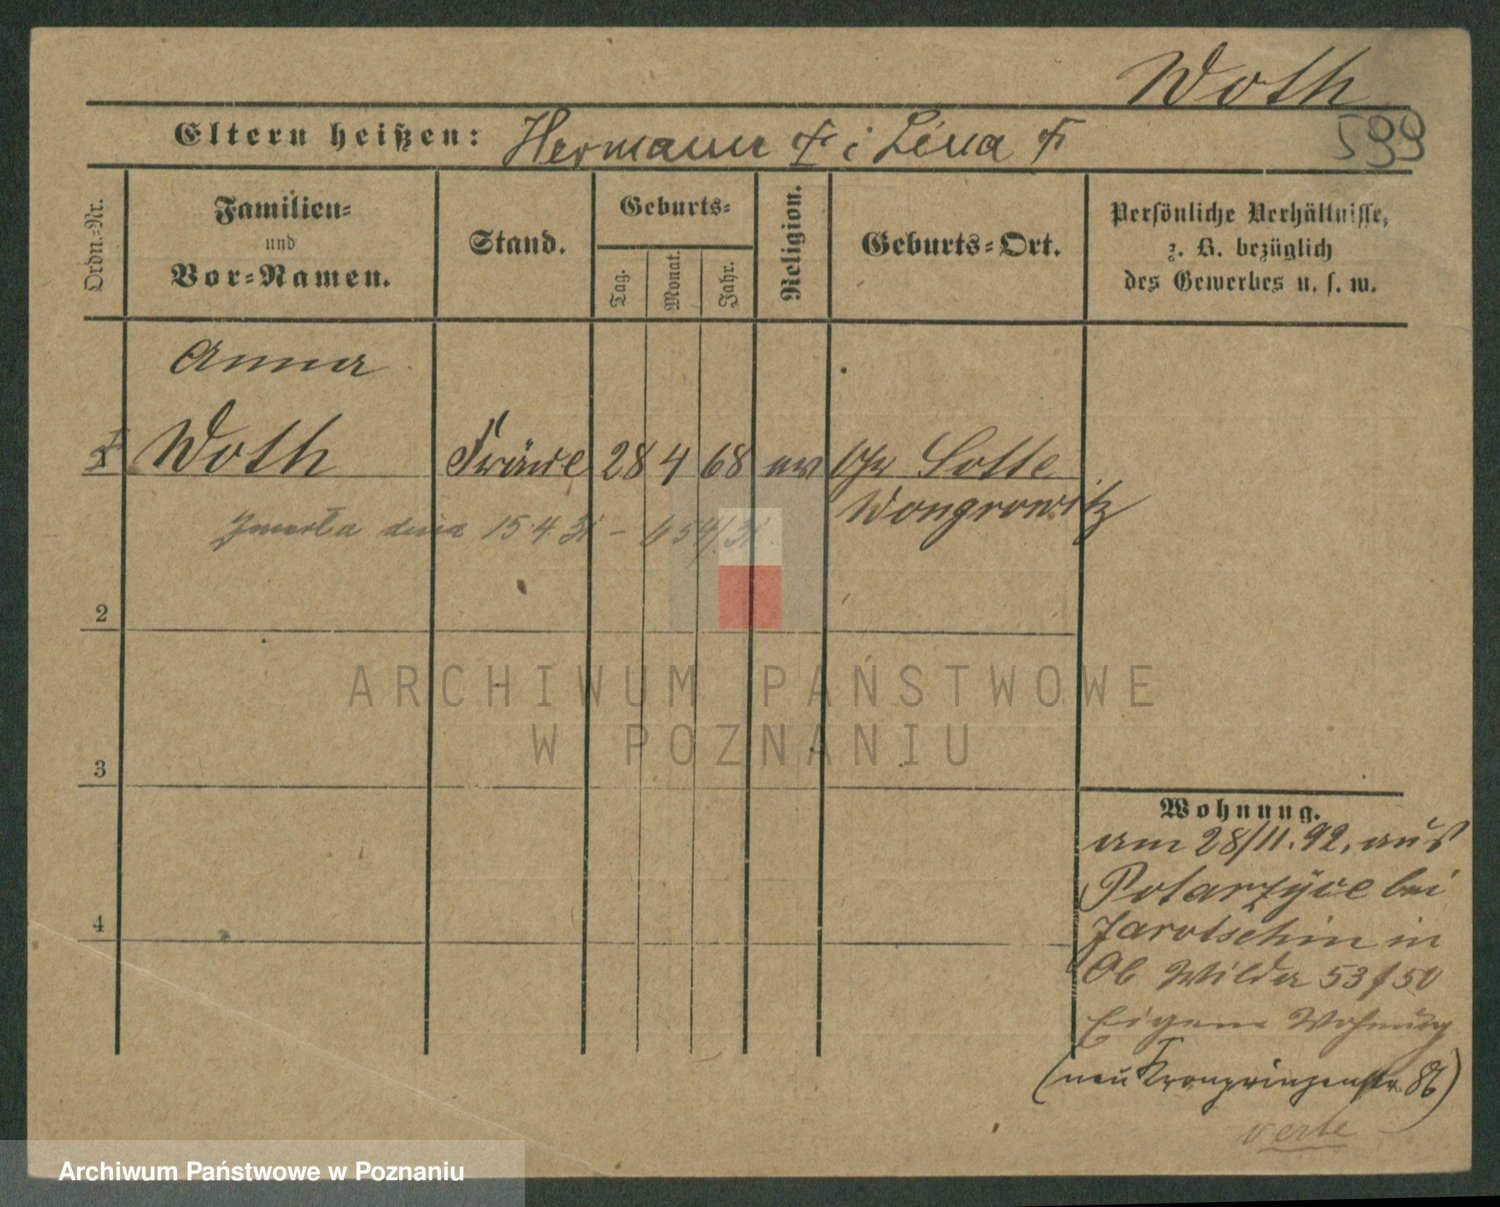 Woth
599
Eltern heißen: Hermann † ; Lina †
Ordn.-Nr.
Familien-
und
Vor-Namen.
Stand.
Geburts-
Tag.
Monat.
Jahr.
Religion.
Geburts-Ort.
Persönliche Verhältnisse,
z. B. bezüglich
des Gewerbes u. s. w.
Anna
1 Woth 28 4 68 ev Gr Lotte
Wongrowitz
Zmarła dnia 15.4.31 - 654/31.
2
3
4
Wohnung.
am 28/11.92. aus
Potarzyce bei
Jarotschin in
Ob Wilda 53 / 50
Eigene Wohnung
(neu Kronprinzenstr. 86)
verte
ARCHIWUM PAŃSTWOWE
W POZNANIU
Archiwum Państwowe w Poznaniu